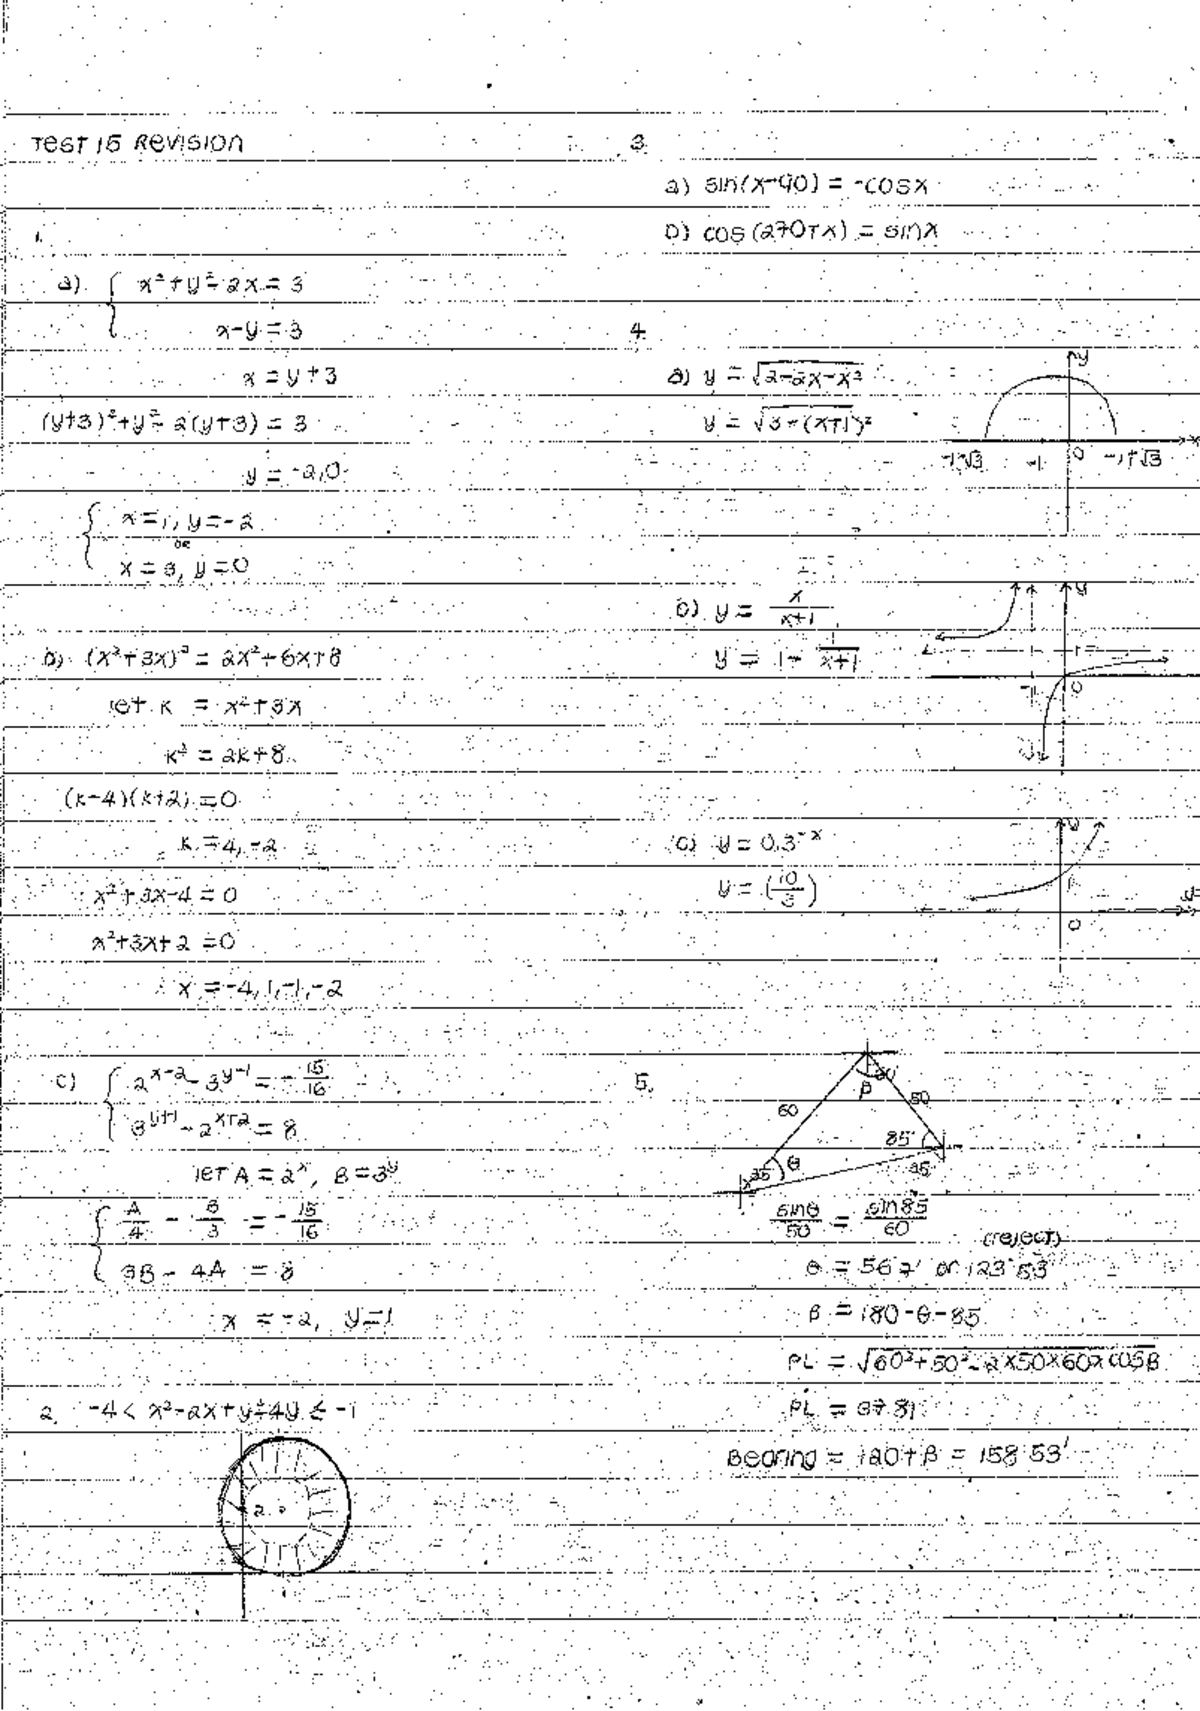 Test 15 Revision
1.
a) x²+y²-2x = 3
x-y = 3
x = y+3
(y+3)²+y²-2(y+3) = 3
y = -2,0
x=1, y=-2
or
x=3, y=0
b) (x²+3x)² = 2x²+6x+8
let k = x²+3x
k² = 2k+8
(k-4)(k+2) = 0
k = 4,-2
x²+3x-4 = 0
x²+3x+2 = 0
x = -4,1,-1,-2
c) 2^(x-2) - 3^(y-1) = -15/16
3^(y+1) - 2^(x+2) = 8
let A = 2^x, B = 3^y
A/4 - B/3 = -15/16
3B - 4A = 8
x = -2, y=1
2. -4 < x²-2x+y²-4y ≤ -1
2
3.
a) sin(x-90) = -cosx
b) cos(270+x) = sinx
4.
a) y = √(2-2x-x²)
y = √(3-(x+1)²)
y
x
-1-√3 -1 0 -1+√3
b) y = x/(x+1)
y = 1- 1/(x+1)
y
1
-1 0
c) y = 0.3^-x
y = (10/3)
y
1
0
5.
β
60
50
85
θ
35
sinθ/50 = sin85/60
(reject)
θ = 56 7' or 123 53'
β = 180-θ-85
PL = √(60²+50²-2×50×60×cosβ
PL = 37.81
Bearing = 120+β = 158 53'